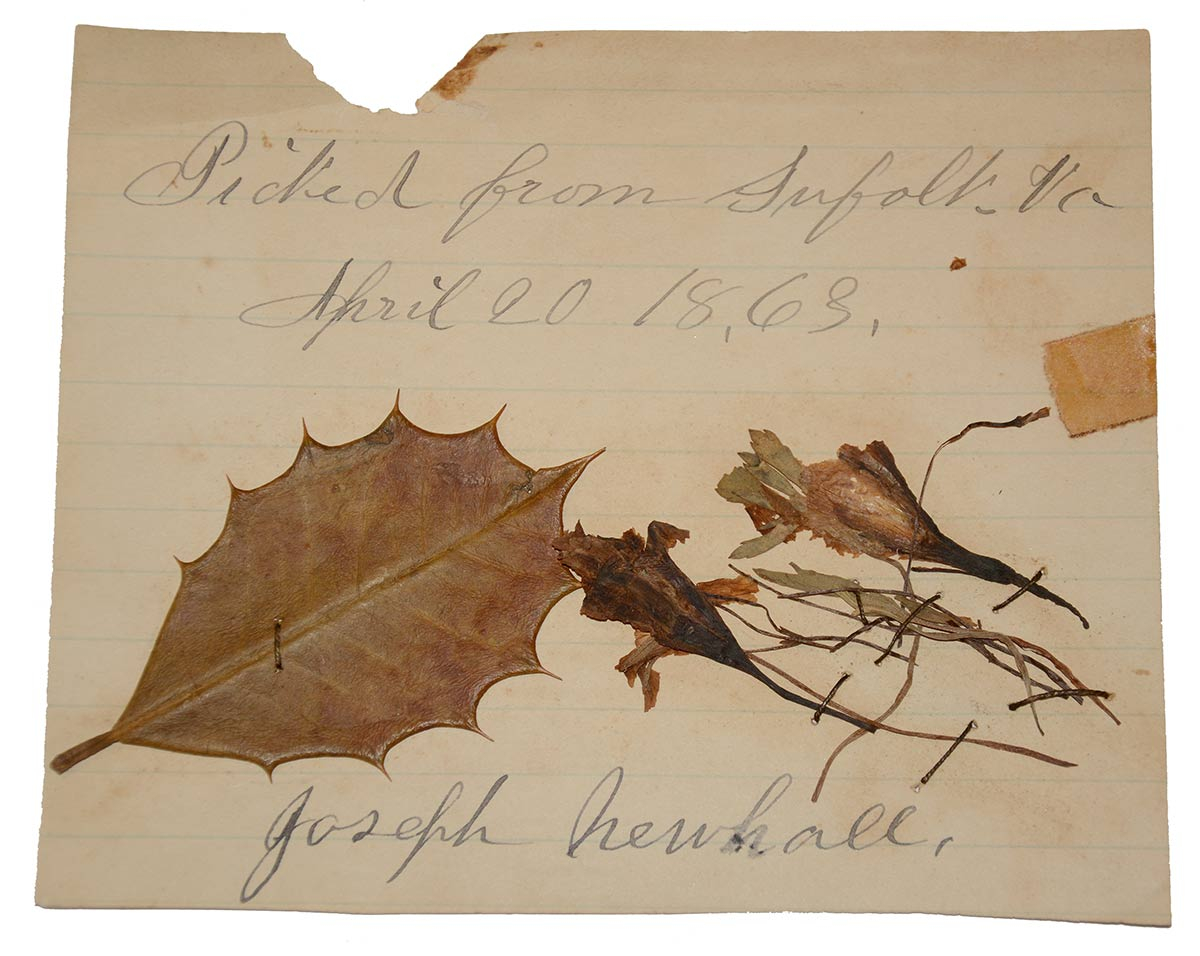 Picked from Sufolk. Va
April 20 18,63.
Joseph Newhall.